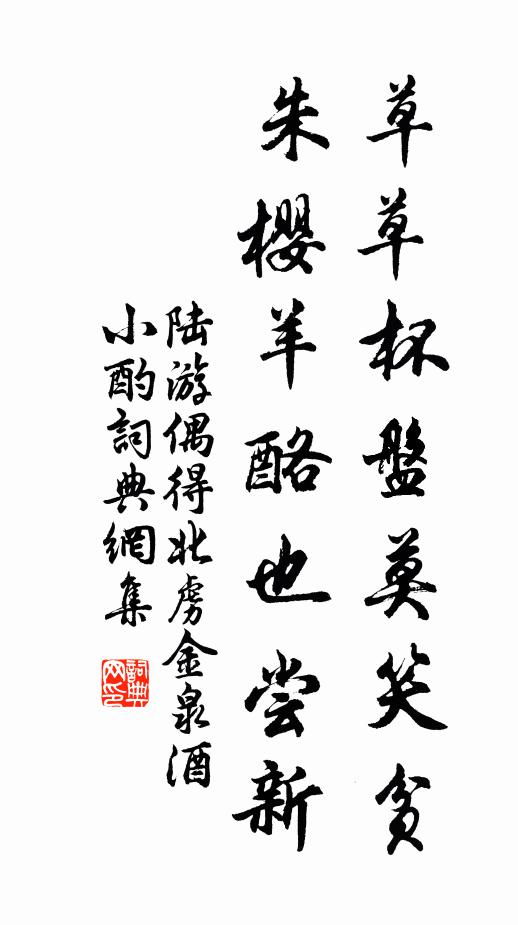 草草杯盤莫笑貧
朱櫻羊酪也尝新
陆游偶得北虜金泉酒
小酌詞典網集
詞典网印